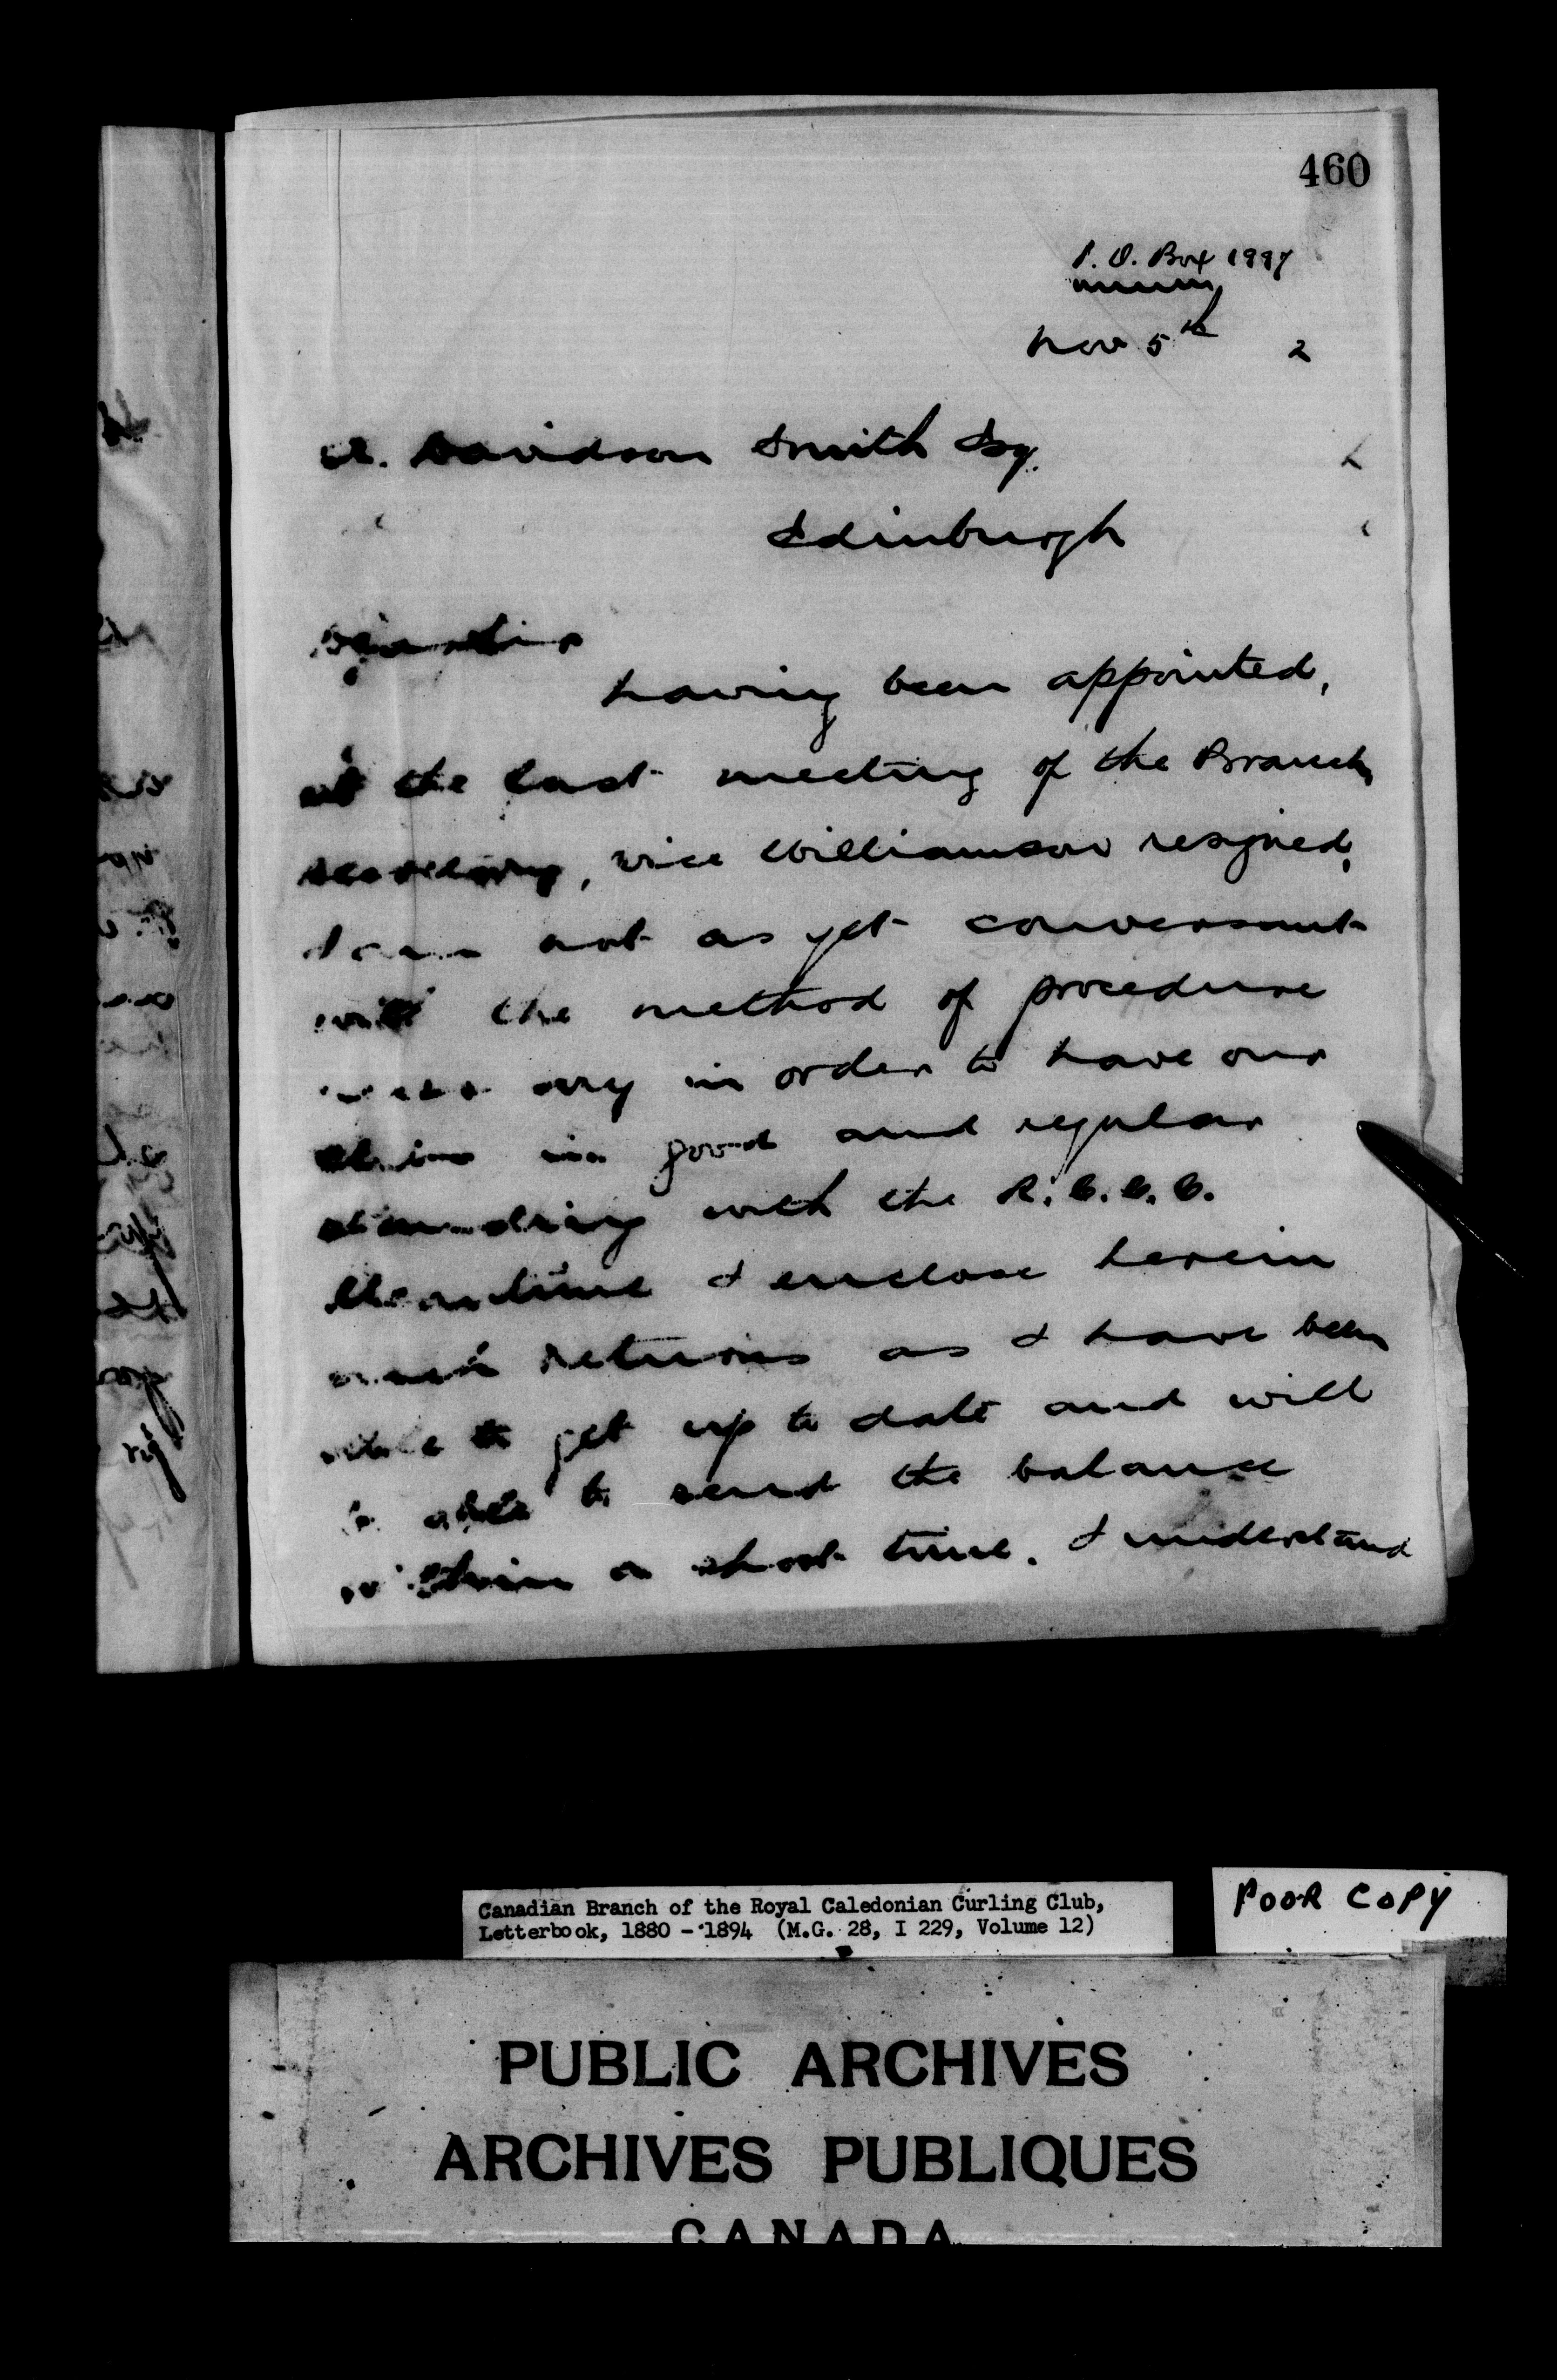 460
P. O. Box 1997
Nov 5th 2
A. Davidson Smith Esq.
Edinburgh
Dear Sir
having been appointed,
at the last meeting of the Branch
Secretary, vice Williamson resigned,
I am not as yet conversant
with the method of procedure
necessary in order to have our
clubs in good and regular
standing with the R.C.C.C.
Meantime I enclose herein
such returns as I have been
able to get up to date and will
be able to send the balance
within a short time. I understand
Canadian Branch of the Royal Caledonian Curling Club,
Letterbook, 1880 - 1894 (M.G. 28, I 229, Volume 12)
POOR COPY
PUBLIC ARCHIVES
ARCHIVES PUBLIQUES
CANADA